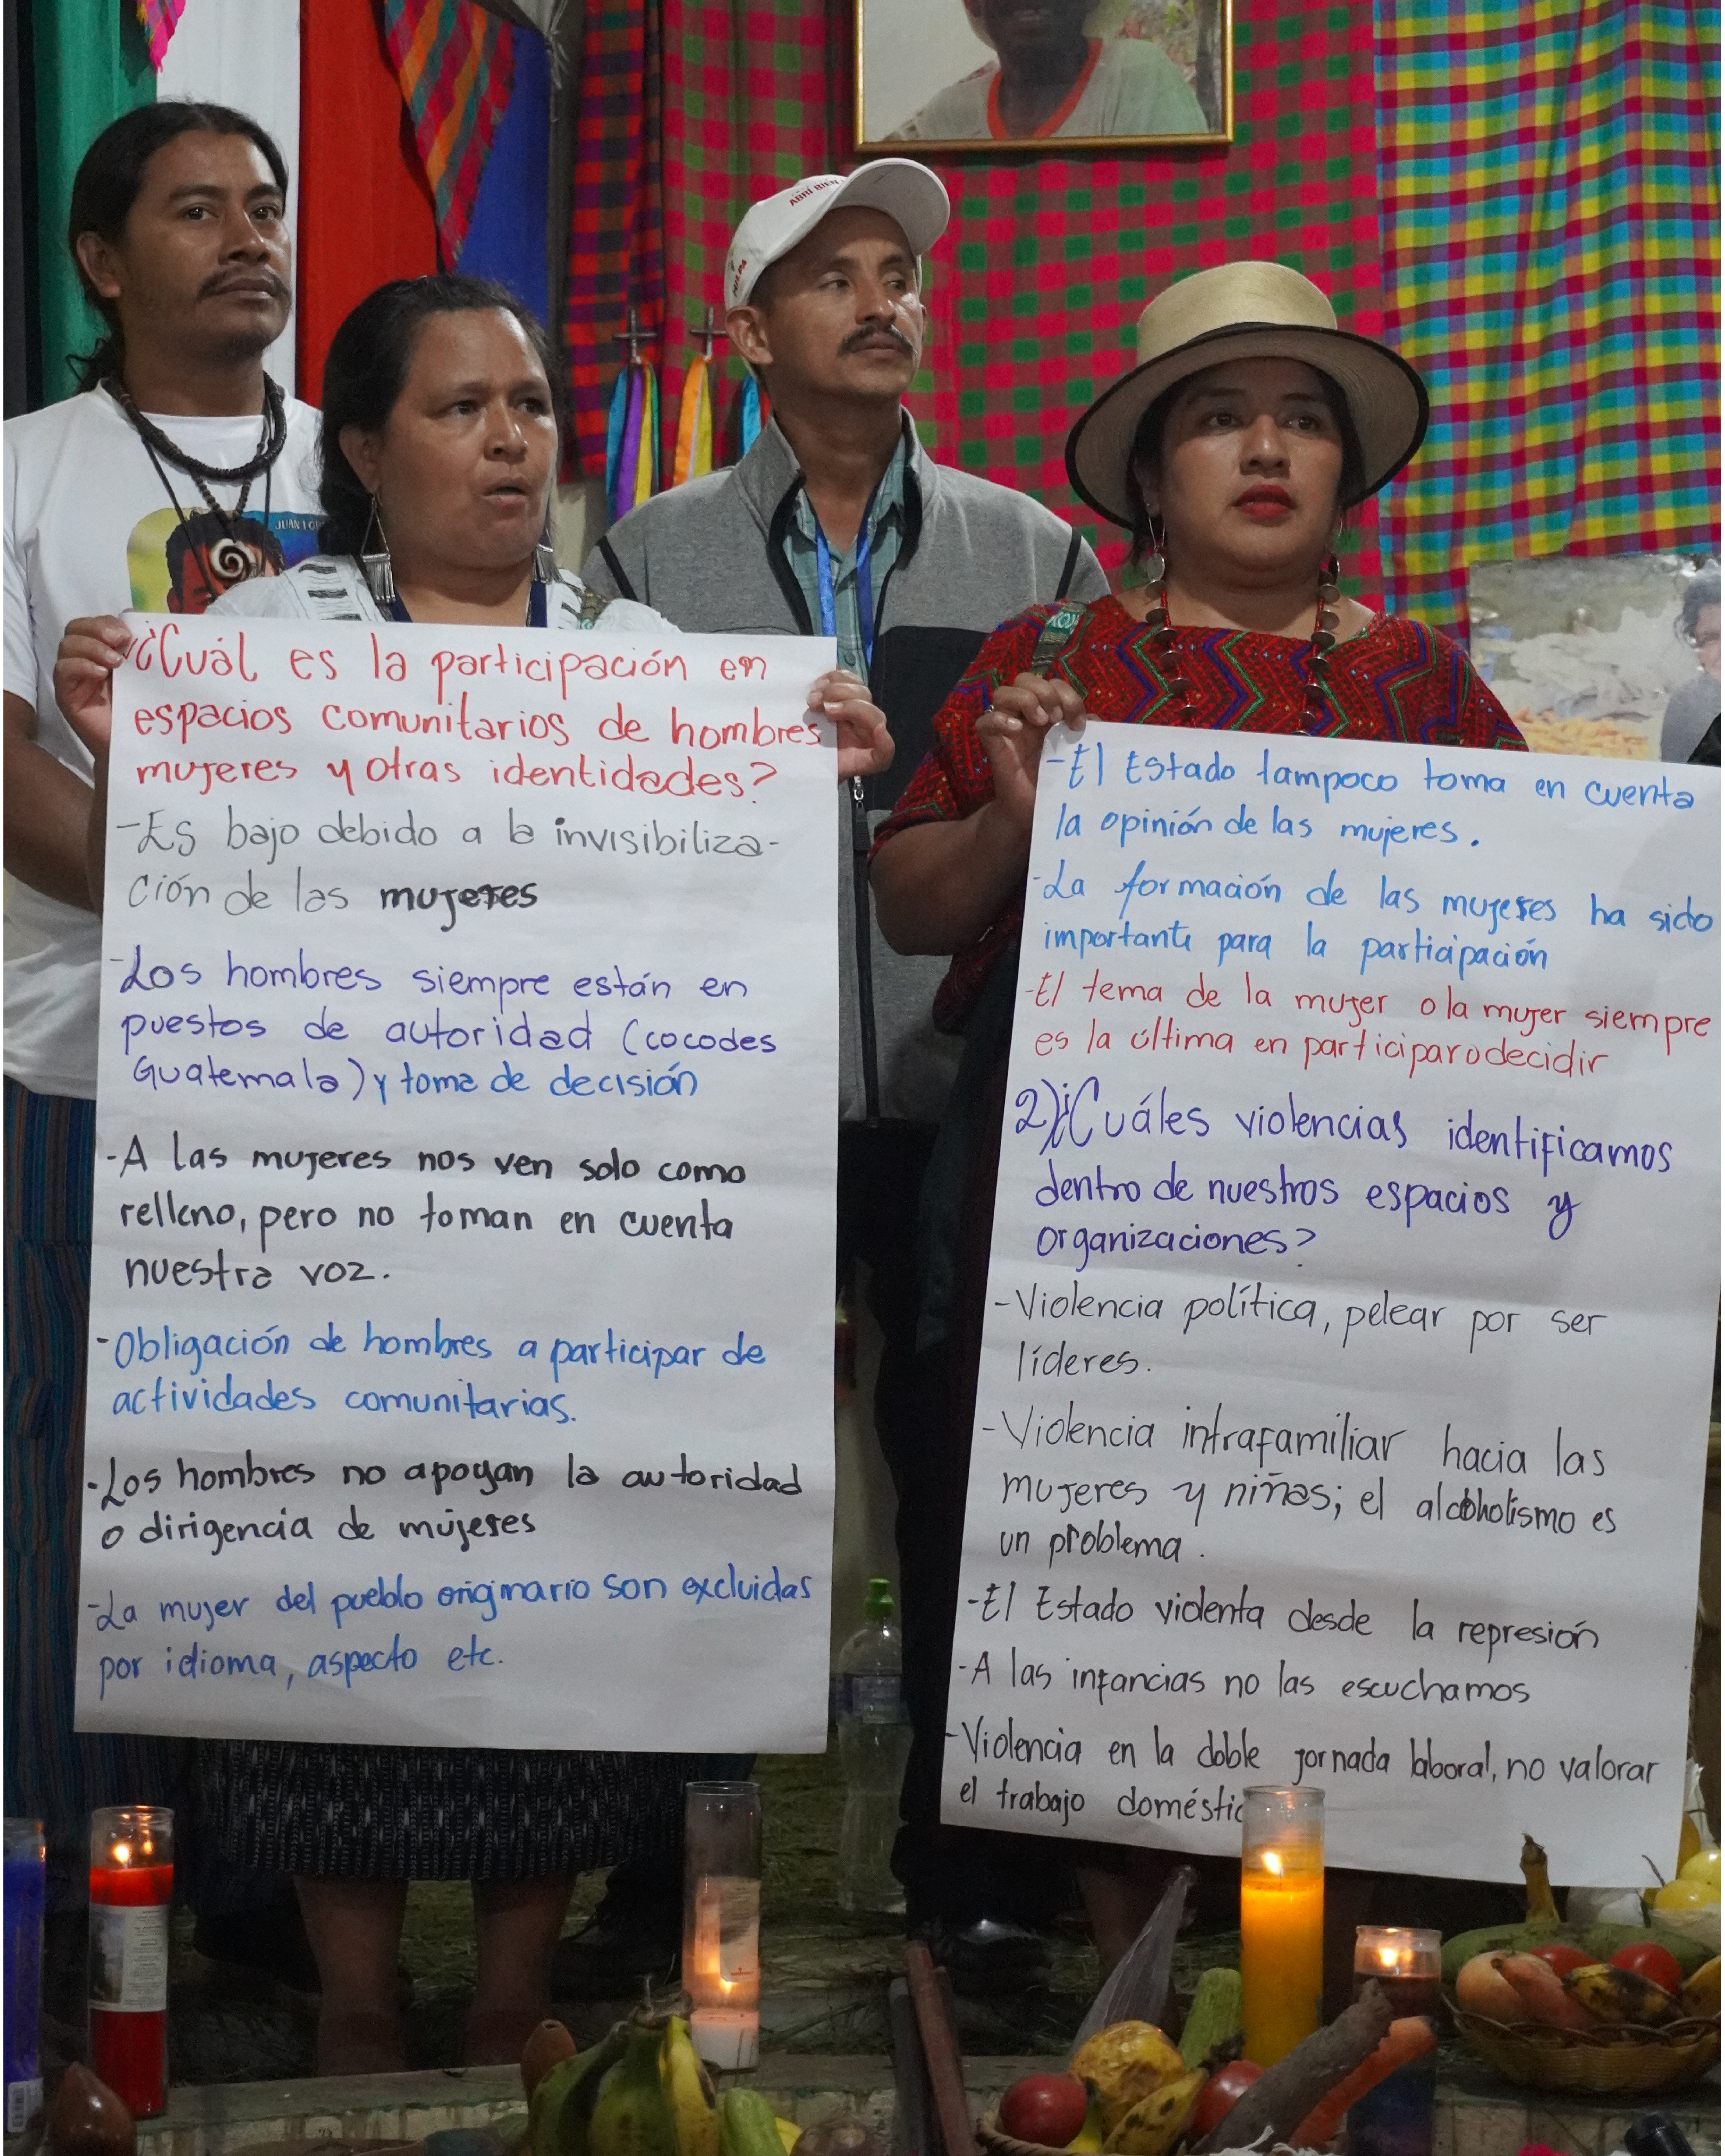 ABRÍ BIEN
JUAN LOP
¿Cuál es la participación en
espacios comunitarios de hombres
mujeres y otras identidades?
-Es bajo debido a la invisibiliza-
ción de las mujeres
-Los hombres siempre están en
puestos de autoridad (cocodes
Guatemala) y toma de decisión
-A las mujeres nos ven solo como
relleno, pero no toman en cuenta
nuestra voz.
-Obligación de hombres a participar de
actividades comunitarias.
-Los hombres no apoyan la autoridad
o dirigencia de mujeres
-La mujer del pueblo originario son excluidas
por idioma, aspecto etc.
-El Estado tampoco toma en cuenta
la opinión de las mujeres.
-La formación de las mujeres ha sido
importante para la participación
-El tema de la mujer o la mujer siempre
es la última en participar o decidir
2) ¿Cuáles violencias identificamos
dentro de nuestros espacios y
organizaciones?
-Violencia política, pelear por ser
líderes.
-Violencia intrafamiliar hacia las
mujeres y niñas; el alcoholismo es
un problema.
-El Estado violenta desde la represión
-A las infancias no las escuchamos
-Violencia en la doble jornada laboral, no valorar
el trabajo doméstic